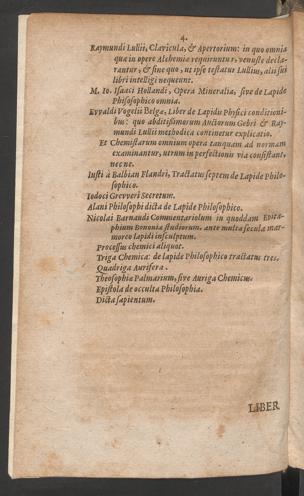 4.
Raymundi Lullii, Clavicula, & Apertorium: in quo omnia
quæ in opere Alchemiæ requiruntur, venuste decla-
rantur, & sine quo, ut ipse testatur Lullius, alii sui
libri intelligi nequeunt.
M. Io. Isaaci Hollandi, Opera Mineralia, sive de Lapide
Philosophico omnia.
Evvaldi Vogelii Belgæ, Liber de Lapidis Physici conditioni-
bus: quo abditissimorum Auctorum Gebri & Ray-
mundi Lullii methodica continetur explicatio.
Et Chemistarum omnium opera tanquam ad normam
examinantur, utrum in perfectionis via consistant,
nec ne.
Iusti à Balbian Flandri, Tractatus septem de Lapide Philo-
sophico.
Iodoci Grevveri Secretum.
Alani Philosophi dicta de Lapide Philosophico.
Nicolai Barnaudi Commentariolum in quoddam Epita-
phium Bononiæ studiorum, ante multa secula mar-
moreo lapidi insculptum.
Processus chemici aliquot.
Triga Chemica: de lapide Philosophico tractatus tres.
Quadriga Aurifera.
Theosophiæ Palmarium, sive Auriga Chemicus.
Epistola de occulta Philosophia.
Dicta sapientum.
LIBER